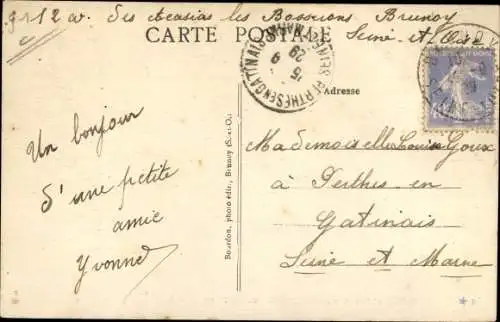 9112 av. des Acasias les Bosserons Brunoy
CARTE POSTALE
Seine et Oise
Adresse
Un bonjour
d'une petite
amie
Yvonne
Mademoiselle Louise Goux
à Perthes-en
Gatinais
Seine et Marne
Bourdon, photo édit., Brunoy (S.-et-O.)
PERTHES EN GATINAIS
SEINE ET MARNE
15
9
29